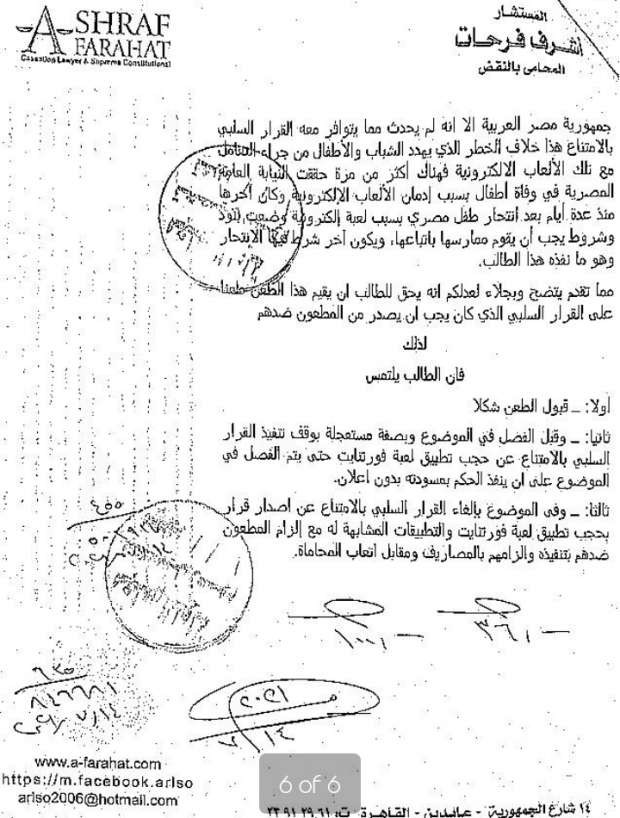 ASHRAF
FARAHAT
Cassation Lawyer & Supreme Constitutional
المستشار
أشرف فرحات
المحامى بالنقض
جمهورية مصر العربية الا انه لم يحدث مما يتوافر معه القرار السلبي
بالامتناع هذا خلاف الخطر الذي يهدد الشباب والأطفال من جراء التعامل
مع تلك الألعاب الالكترونية فهناك أكثر من مرة حققت النيابة العامة
المصرية في وفاة أطفال بسبب إدمان الألعاب الإلكترونية وكان أخرها
منذ عدة أيام بعد انتحار طفل مصري بسبب لعبة إلكترونية وضعت بنود
وشروط يجب أن يقوم ممارسها باتباعها، ويكون آخر شرط فيها الانتحار
وهو ما نفذه هذا الطالب.
مما تقدم يتضح وبجلاء لعدلكم انه يحق للطالب ان يقيم هذا الطعن طعنا
على القرار السلبي الذي كان يجب ان يصدر من المطعون ضدهم
لذلك
فان الطالب يلتمس
اولا: ـ قبول الطعن شكلا
ثانيا: ـ وقبل الفصل في الموضوع وبصفة مستعجلة بوقف تنفيذ القرار
السلبي بالامتناع عن حجب تطبيق لعبة فورتنايت حتى يتم الفصل في
الموضوع على ان ينفذ الحكم بمسودته بدون اعلان.
ثالثا: ـ وفى الموضوع بإلغاء القرار السلبي بالامتناع عن اصدار قرار
بحجب تطبيق لعبة فورتنايت والتطبيقات المشابهة له مع إلزام المطعون
ضدهم بتنفيذه والزامهم بالمصاريف ومقابل اتعاب المحاماة.
٤٥٥
٣٦٠,–
١٠٠,–
٦٣٥
٨٤٦٦٨١
٧/١٤
٢٠٢١
٧/١٤
www.a-farahat.com
https://m.facebook.arlso
arlso2006@hotmail.com
6 of 6
١٤ شارع الجمهورية - عابدين - القاهرة ت: ٢٣٩١٢٩٦١